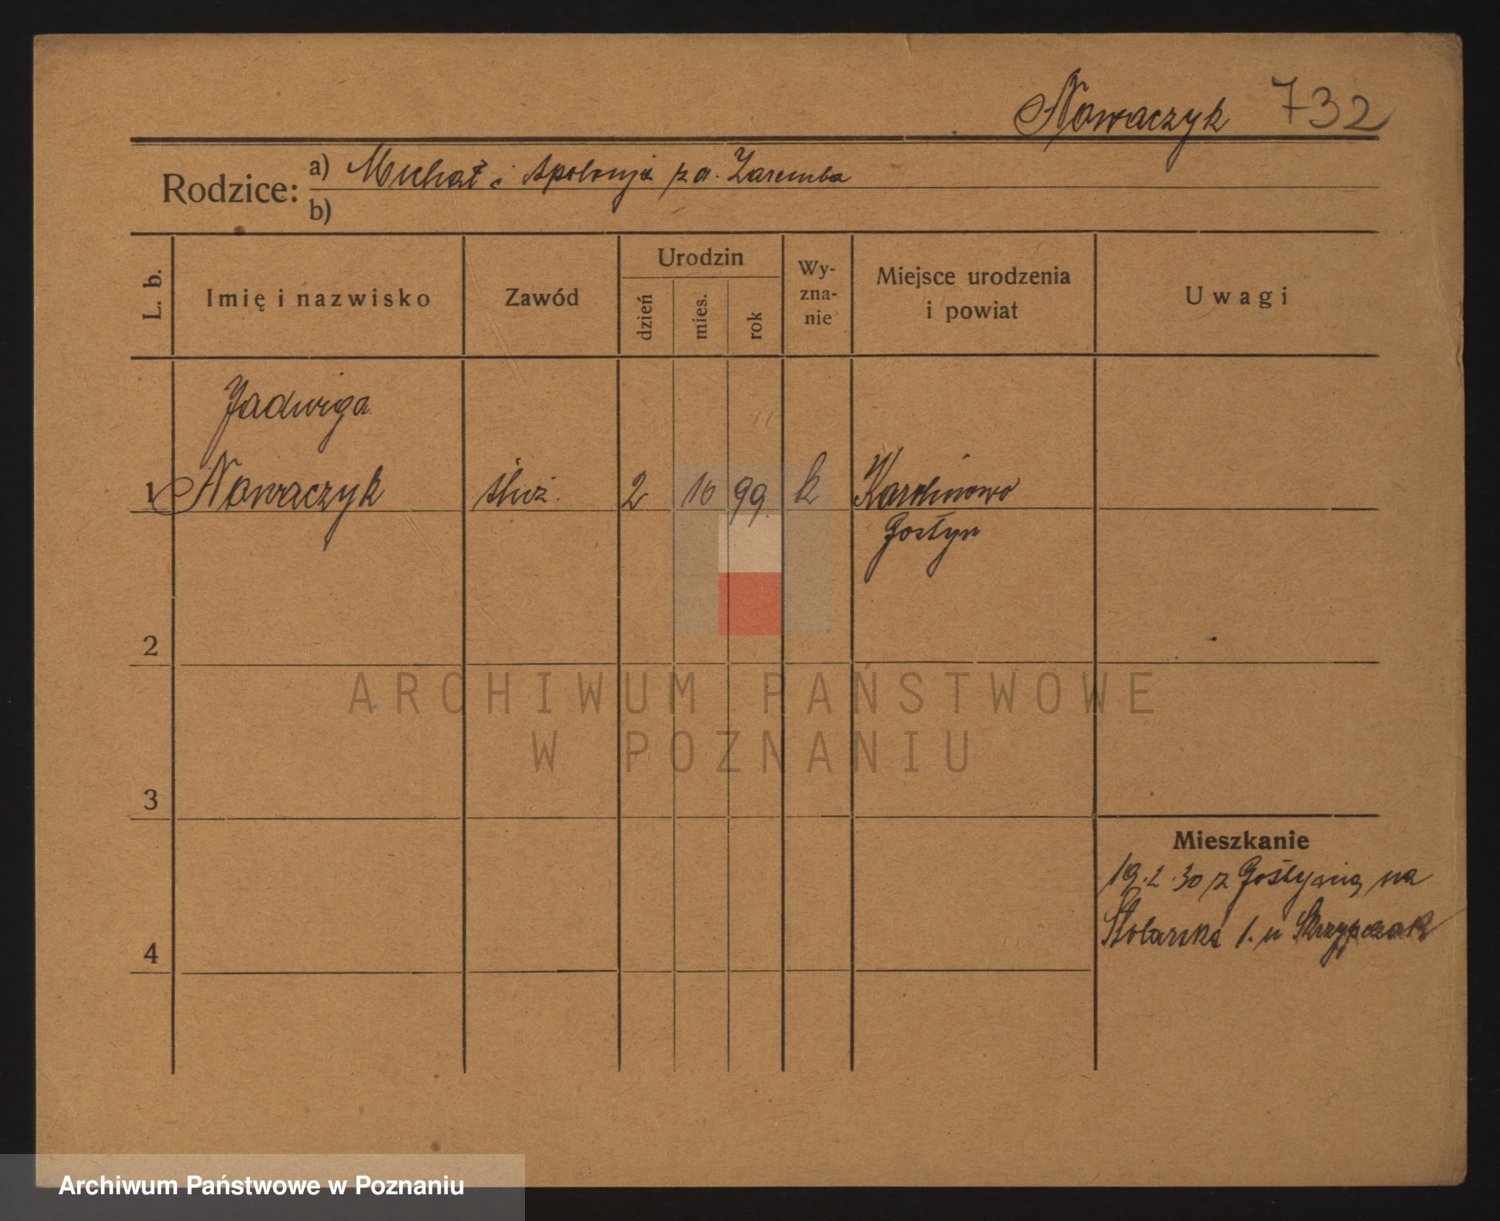 Nowaczyk 732
Rodzice: a) Michał i Apolonja za. Zaremba
b)
L. b.
Imię i nazwisko
Zawód
Urodzin
dzień
mies.
rok
Wy-
zna-
nie
Miejsce urodzenia
i powiat
Uwagi
Jadwiga
1 Nowaczyk służ. 2 10 99 k Karolinowo
Gostyn
2
3
4
Mieszkanie
19. 30 z na
Stolarska 1. u Skrzypczak
ARCHIWUM PAŃSTWOWE
W POZNANIU
Archiwum Państwowe w Poznaniu